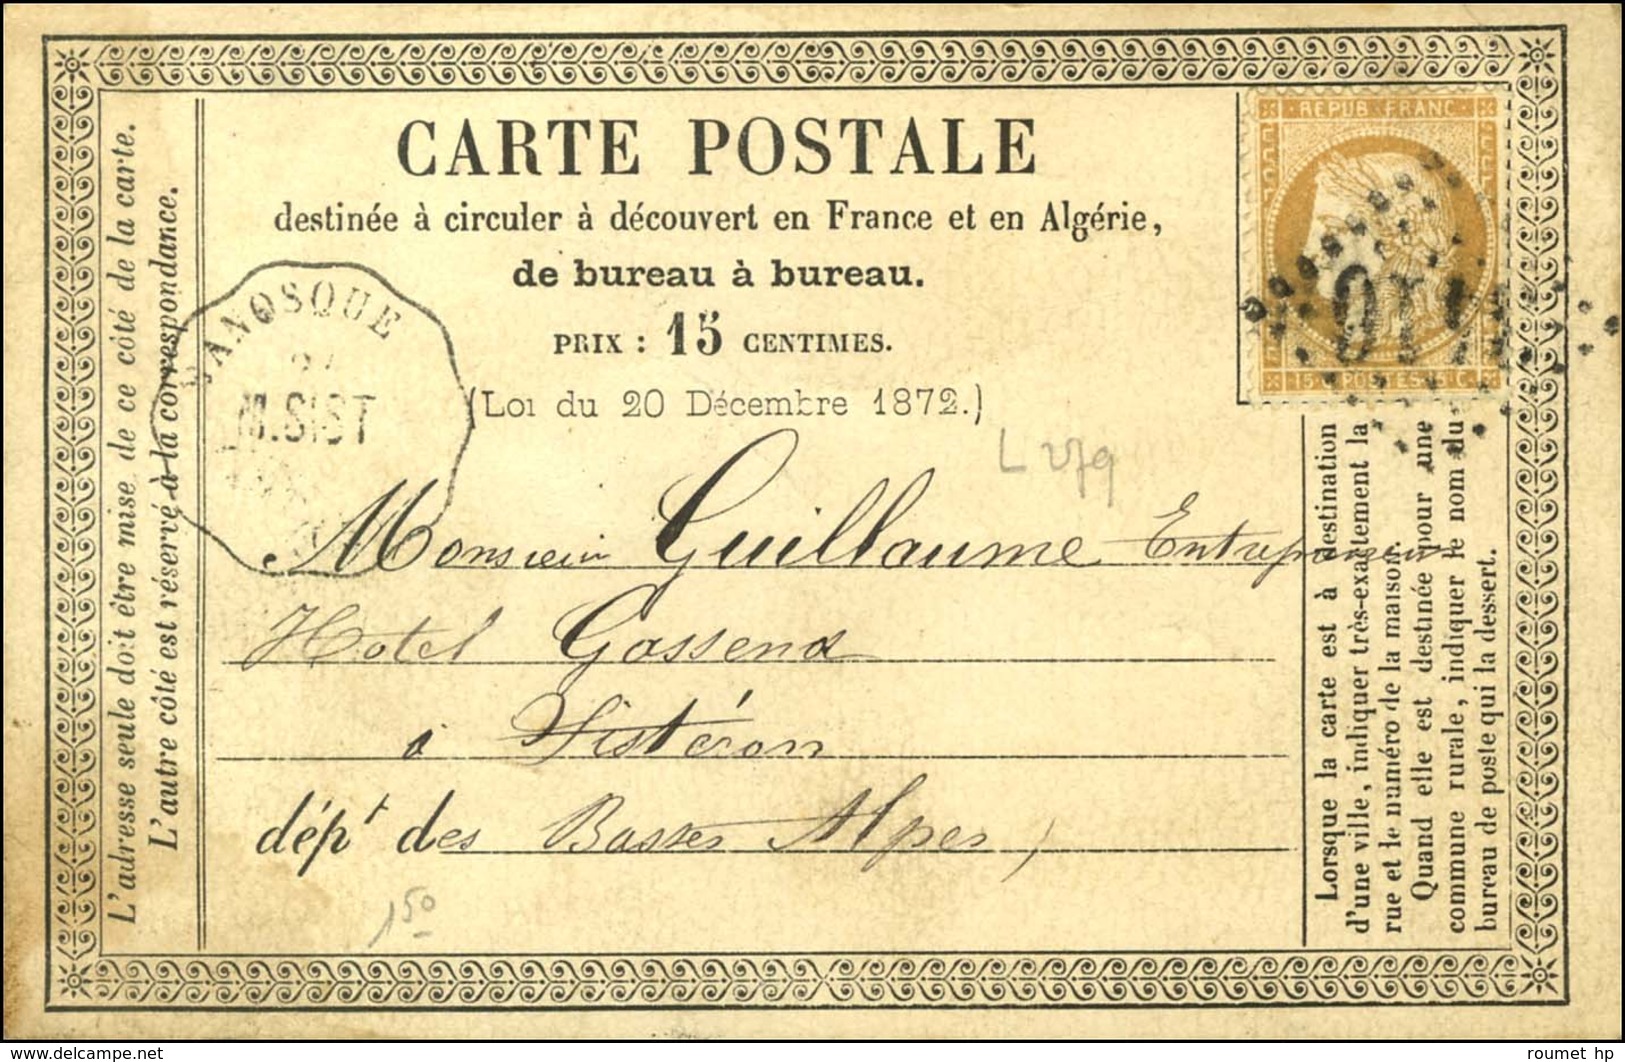 CARTE POSTALE
destinée à circuler à découvert en France et en Algérie,
de bureau à bureau.
PRIX : 15 CENTIMES.
(Loi du 20 Décembre 1872.)
REPUB. FRANC.
15 POSTES 15 C.
MANOSQUE
M.SIST
L 279
Monsieur Guillaume Entrepreneur
Hotel Gassend
à Sistéron
dépt des Basses Alpes
150
L'adresse seule doit être mise de ce côté de la carte.
L'autre côté est réservé à la correspondance.
Lorsque la carte est à destination
d'une ville, indiquer très-exactement la
rue et le numéro de la maison.
Quand elle est destinée pour une
commune rurale, indiquer le nom du
bureau de poste qui la dessert.
delcampe.net
roumet hp